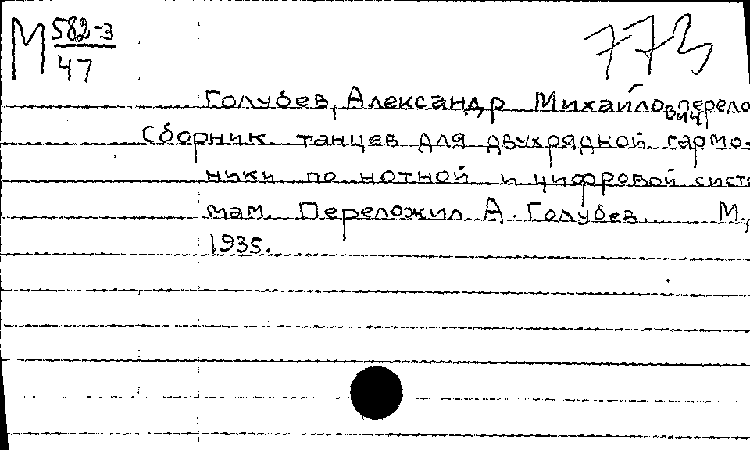 М 582-3
47
773
Голубев, Александр Михайлович, перело
Сборник танцев для двухрядной гармо-
ники по нотной и цифровой систе
мам. Переложил А. Голубев. М.,
1935.